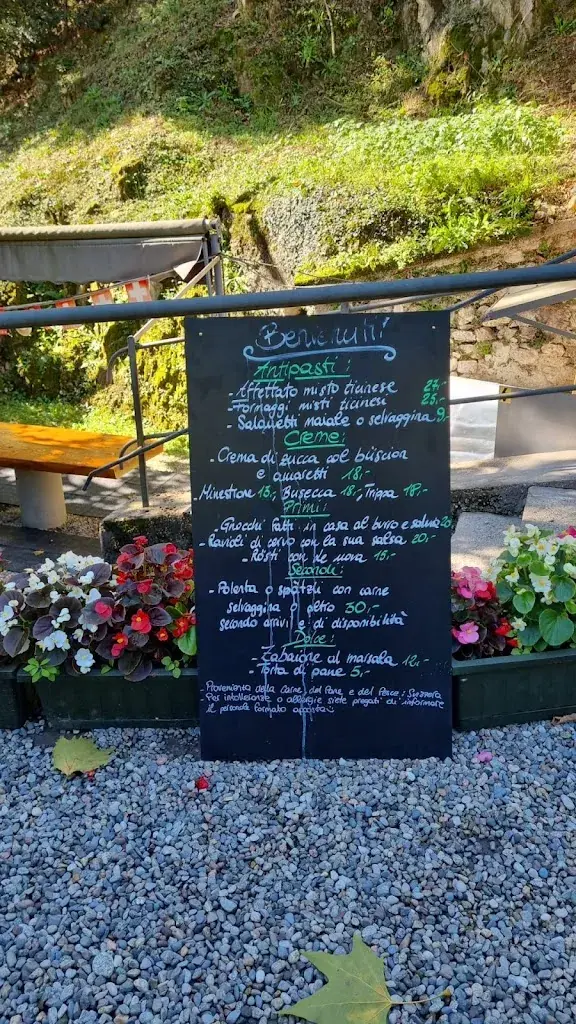 Benvenuti
Antipasti:
- Affettato misto ticinese 27.-
- Formaggi misti ticinesi 25.-
- Salametti maiale o selvaggina 9.-
Creme:
- Crema di zucca col büscion
e amaretti 18.-
Minestrone 15.- Busecca 18.- Trippa 18.-
Primi:
- Gnocchi fatti in casa al burro e salvia
- Ravioli di cervo con la sua salsa 20.-
- Rösti con due uova 15.-
Secondi:
- Polenta o spätzli con carne
selvaggina o altro 30.-
secondo arrivi e di disponibilità
Dolce:
- Zabaione al marsala 12.-
- Torta di pane 5.-
Provenienza della carne del Pane e del Pesce: Svizzera
Per intolleranze o allergie siete pregati di informare
il personale formato apposta